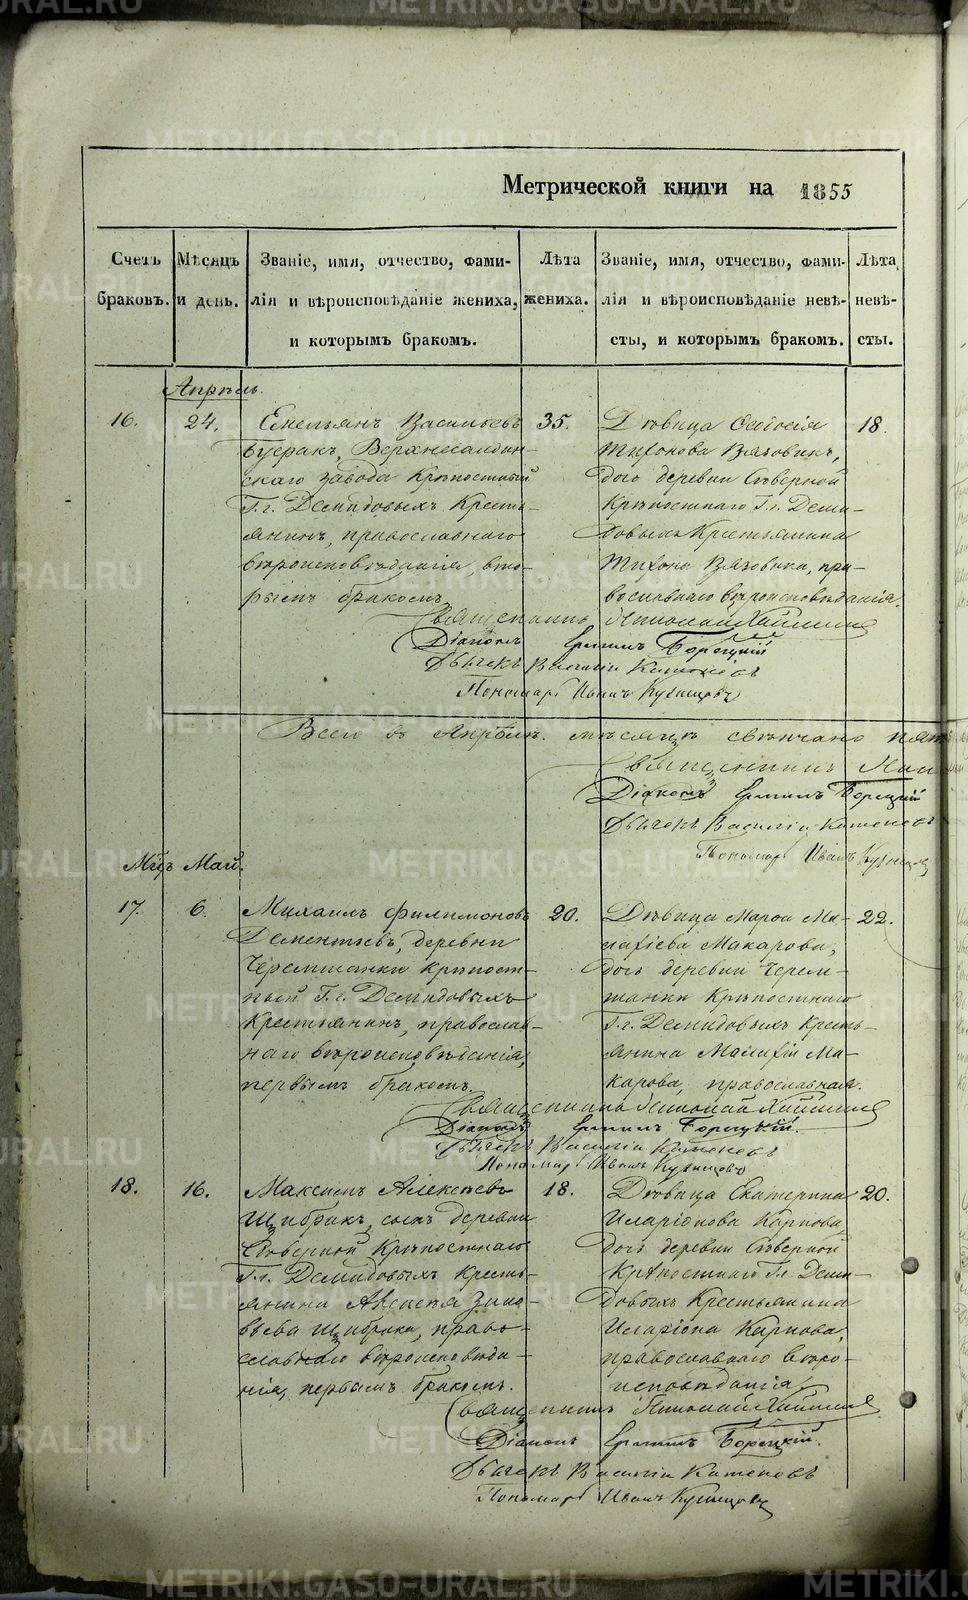 METRIKI.GASO-URAL.RU
Метрической книги на 1855
Счетъ браковъ.
Мѣсяцъ и день.
Званіе, имя, отчество, фами-
лія и вѣроисповѣданіе жениха,
и которымъ бракомъ.
Лѣта
жениха.
Званіе, имя, отчество, фами-
лія и вѣроисповѣданіе невѣ-
сты, и которымъ бракомъ.
Лѣта
невѣ-
сты.
Апрѣль
16.
24.
Емельянъ Васильевъ
Бусракъ, Верхнесалдин-
скаго завода Крѣпостный
Г.г. Демидовыхъ Кресть-
янинъ, православнаго
вѣроисповѣданія, вто-
рымъ бракомъ.
35.
Дѣвица Ѳедосія
Тихонова Вязовикъ,
дочь деревни Сѣверной
Крѣпостнаго Г.г. Деми-
довыхъ Крестьянина
Тихона Вязовика, пра-
вославнаго вѣроисповѣданія.
18.
Священникъ Николай
Діаконъ Борецкій
Дьячекъ Василій Катеневъ
Пономарь Иванъ Кузнецовъ
Всего въ Апрѣлѣ мѣсяцѣ свѣнчано пять
Священникъ
Діаконъ Борецкій
Дьячекъ Василій Катеневъ
Пономарь Иванъ Кузнецовъ
Мцъ Май.
17.
6.
Михаилъ Филимоновъ
Дементьевъ, деревни
Черемшанки Крѣпост-
ный Г.г. Демидовыхъ
Крестьянинъ, православ-
наго вѣроисповѣданія,
первымъ бракомъ.
20.
Дѣвица Марѳа Ма-
лафіева Макарова,
дочь деревни Черем-
шанки Крѣпостнаго
Г.г. Демидовыхъ Кресть-
янина Малафія Ма-
карова, православная.
22.
Священникъ Николай
Діаконъ Борецкій.
Дьячекъ Василій Катеневъ
Пономарь Иванъ Кузнецовъ
18.
16.
Максимъ Алексѣевъ
Щибракъ, сынъ деревни
Сѣверной Крѣпостнаго
Г.г. Демидовыхъ Кресть-
янина Алексѣя Зино-
вьева Щибрака, право-
славнаго вѣроисповѣда-
нія, первымъ бракомъ.
18.
Дѣвица Екатерина
Иларіонова Карпова,
дочь деревни Сѣверной
Крѣпостнаго Г.г. Деми-
довыхъ Крестьянина
Иларіона Карпова,
православнаго вѣро-
исповѣданія.
20.
Священникъ Николай
Діаконъ Борецкій.
Дьячекъ Василій Катеневъ
Пономарь Иванъ Кузнецовъ